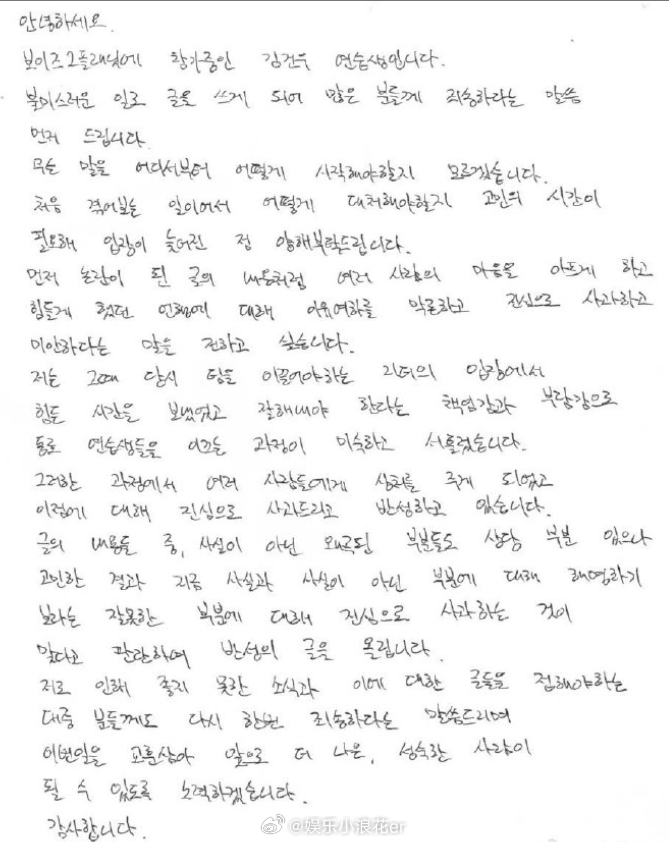 안녕하세요.
보이즈2플래닛에 참가중인 김건우 연습생입니다.
불미스러운 일로 글을 쓰게 되어 많은 분들께 죄송하다는 말씀
먼저 드립니다.
무슨 말을 어디서부터 어떻게 시작해야할지 모르겠습니다.
처음 겪어보는 일이어서 어떻게 대처해야할지 고민의 시간이
필요해 입장이 늦어진 점 양해부탁드립니다.
먼저 논란이 된 글의 내용처럼 여러 사람의 마음을 아프게 하고
힘들게 했던 언행에 대해 이유여하를 막론하고 진심으로 사과하고
미안하다는 말을 전하고 싶습니다.
저는 그때 당시 팀을 이끌어야하는 리더의 입장에서
힘든 시간을 보냈었고 잘해내야 한다는 책임감과 부담감으로
동료 연습생들을 이끄는 과정이 미숙하고 서툴렀습니다.
그러한 과정에서 여러 사람들에게 상처를 주게 되었고
이점에 대해 진심으로 사과드리고 반성하고 있습니다.
글의 내용들 중, 사실이 아닌 왜곡된 부분들도 상당 부분 있으나
고민한 결과 지금 사실과 사실이 아닌 부분에 대해 해명하기
보다는 잘못한 부분에 대해 진심으로 사과하는 것이
맞다고 판단하여 반성의 글을 올립니다.
저로 인해 좋지 못한 소식과 이에 대한 글들을 접해야하는
대중 분들께도 다시 한번 죄송하다는 말씀드리며
이번일을 교훈삼아 앞으로 더 나은, 성숙한 사람이
될 수 있도록 노력하겠습니다.
감사합니다.
@娱乐小浪花er